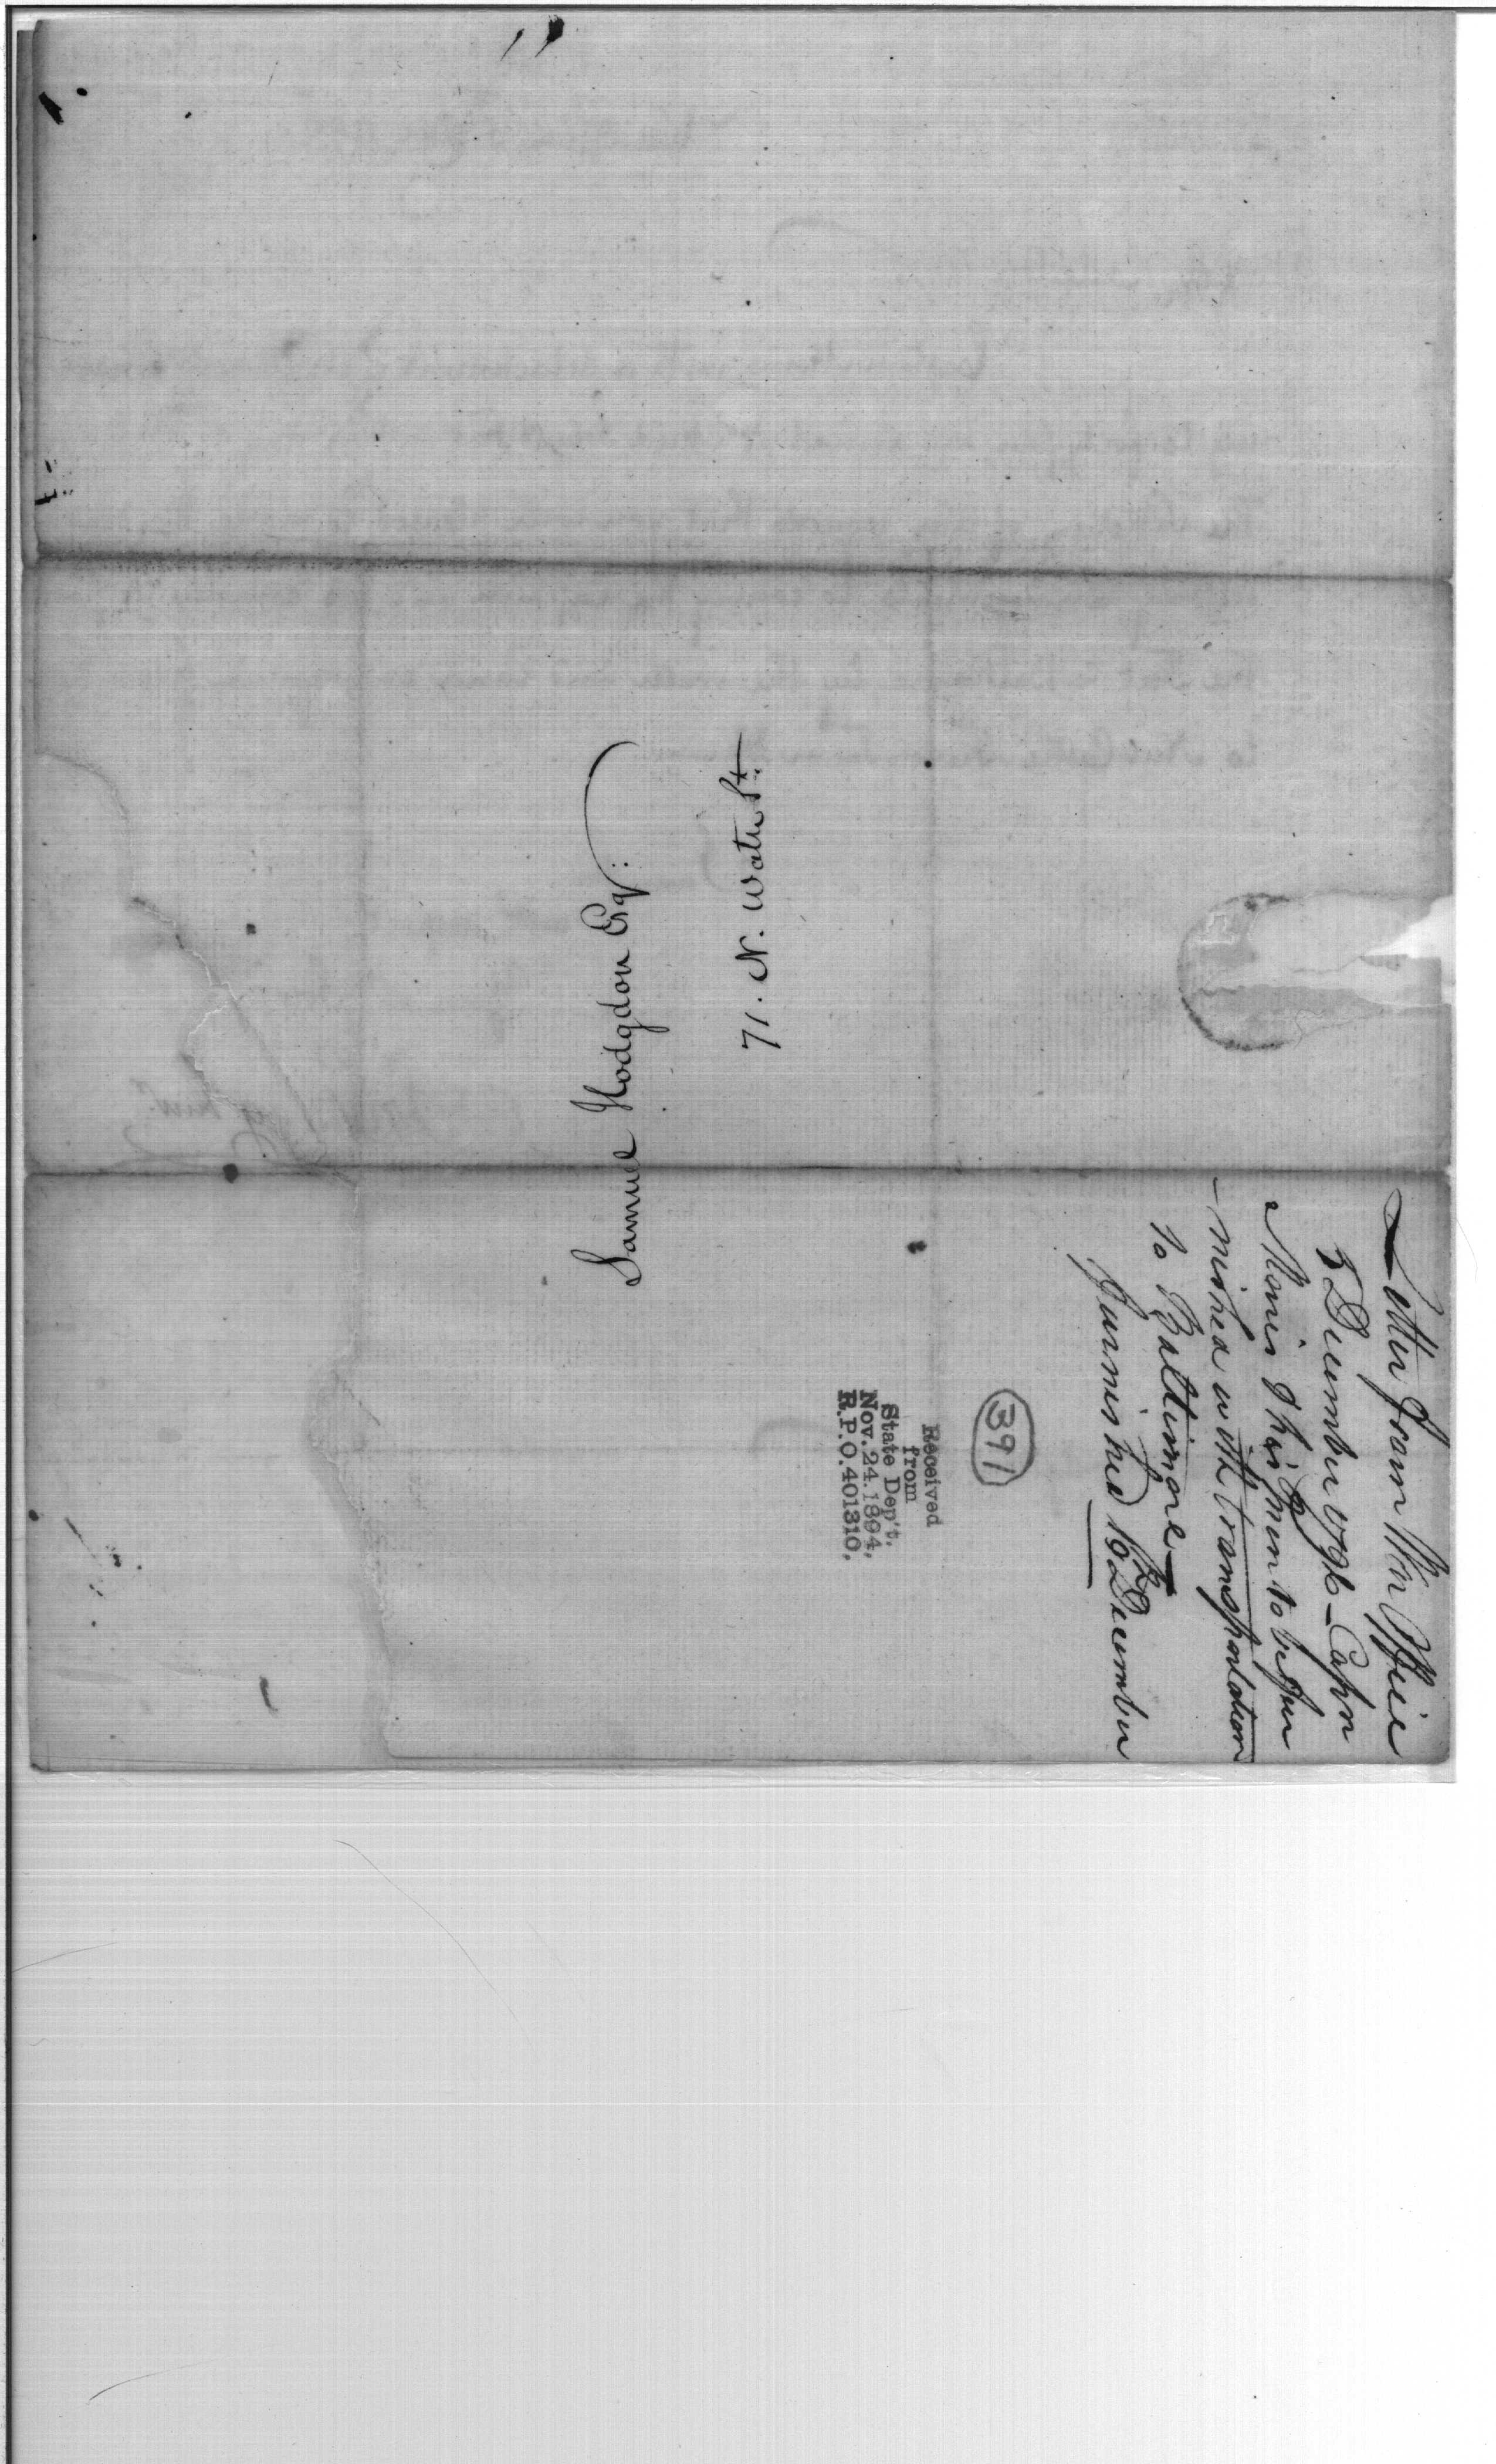 Samuel Hodgdon Esq:
71. N. Water St.
Letter from War Office
3 December 1796 - Capn
Morris & his men to be fur
-nished with transportation
to Baltimore -
furnished 10 December
391
Received
from
State Dep't.
Nov. 24. 1894,
R.P.O. 401310.